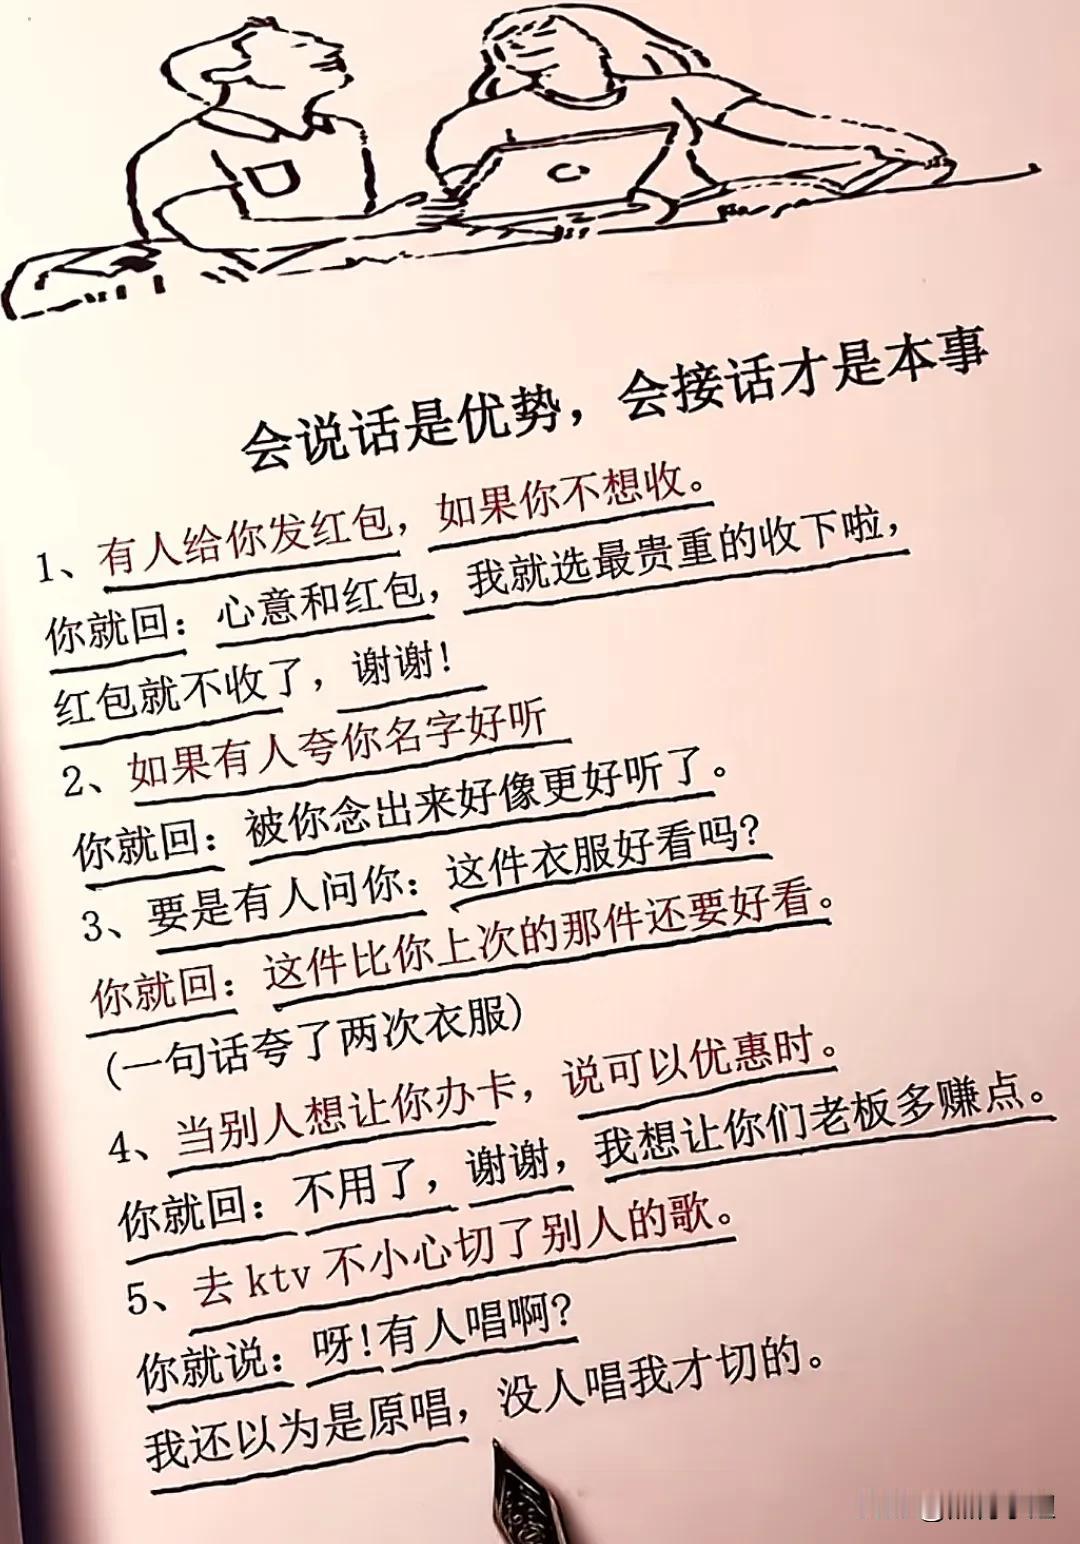 会说话是优势，会接话才是本事
1、有人给你发红包，如果你不想收。
你就回：心意和红包，我就选最贵重的收下啦，
红包就不收了，谢谢！
2、如果有人夸你名字好听
你就回：被你念出来好像更好听了。
3、要是有人问你：这件衣服好看吗？
你就回：这件比你上次的那件还要好看。
(一句话夸了两次衣服)
4、当别人想让你办卡，说可以优惠时。
你就回：不用了，谢谢，我想让你们老板多赚点。
5、去ktv不小心切了别人的歌。
你就说：呀！有人唱啊？
我还以为是原唱，没人唱我才切的。